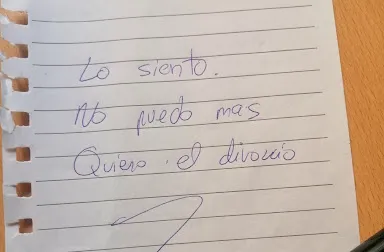 Lo siento.
No puedo mas
Quiero el divorcio